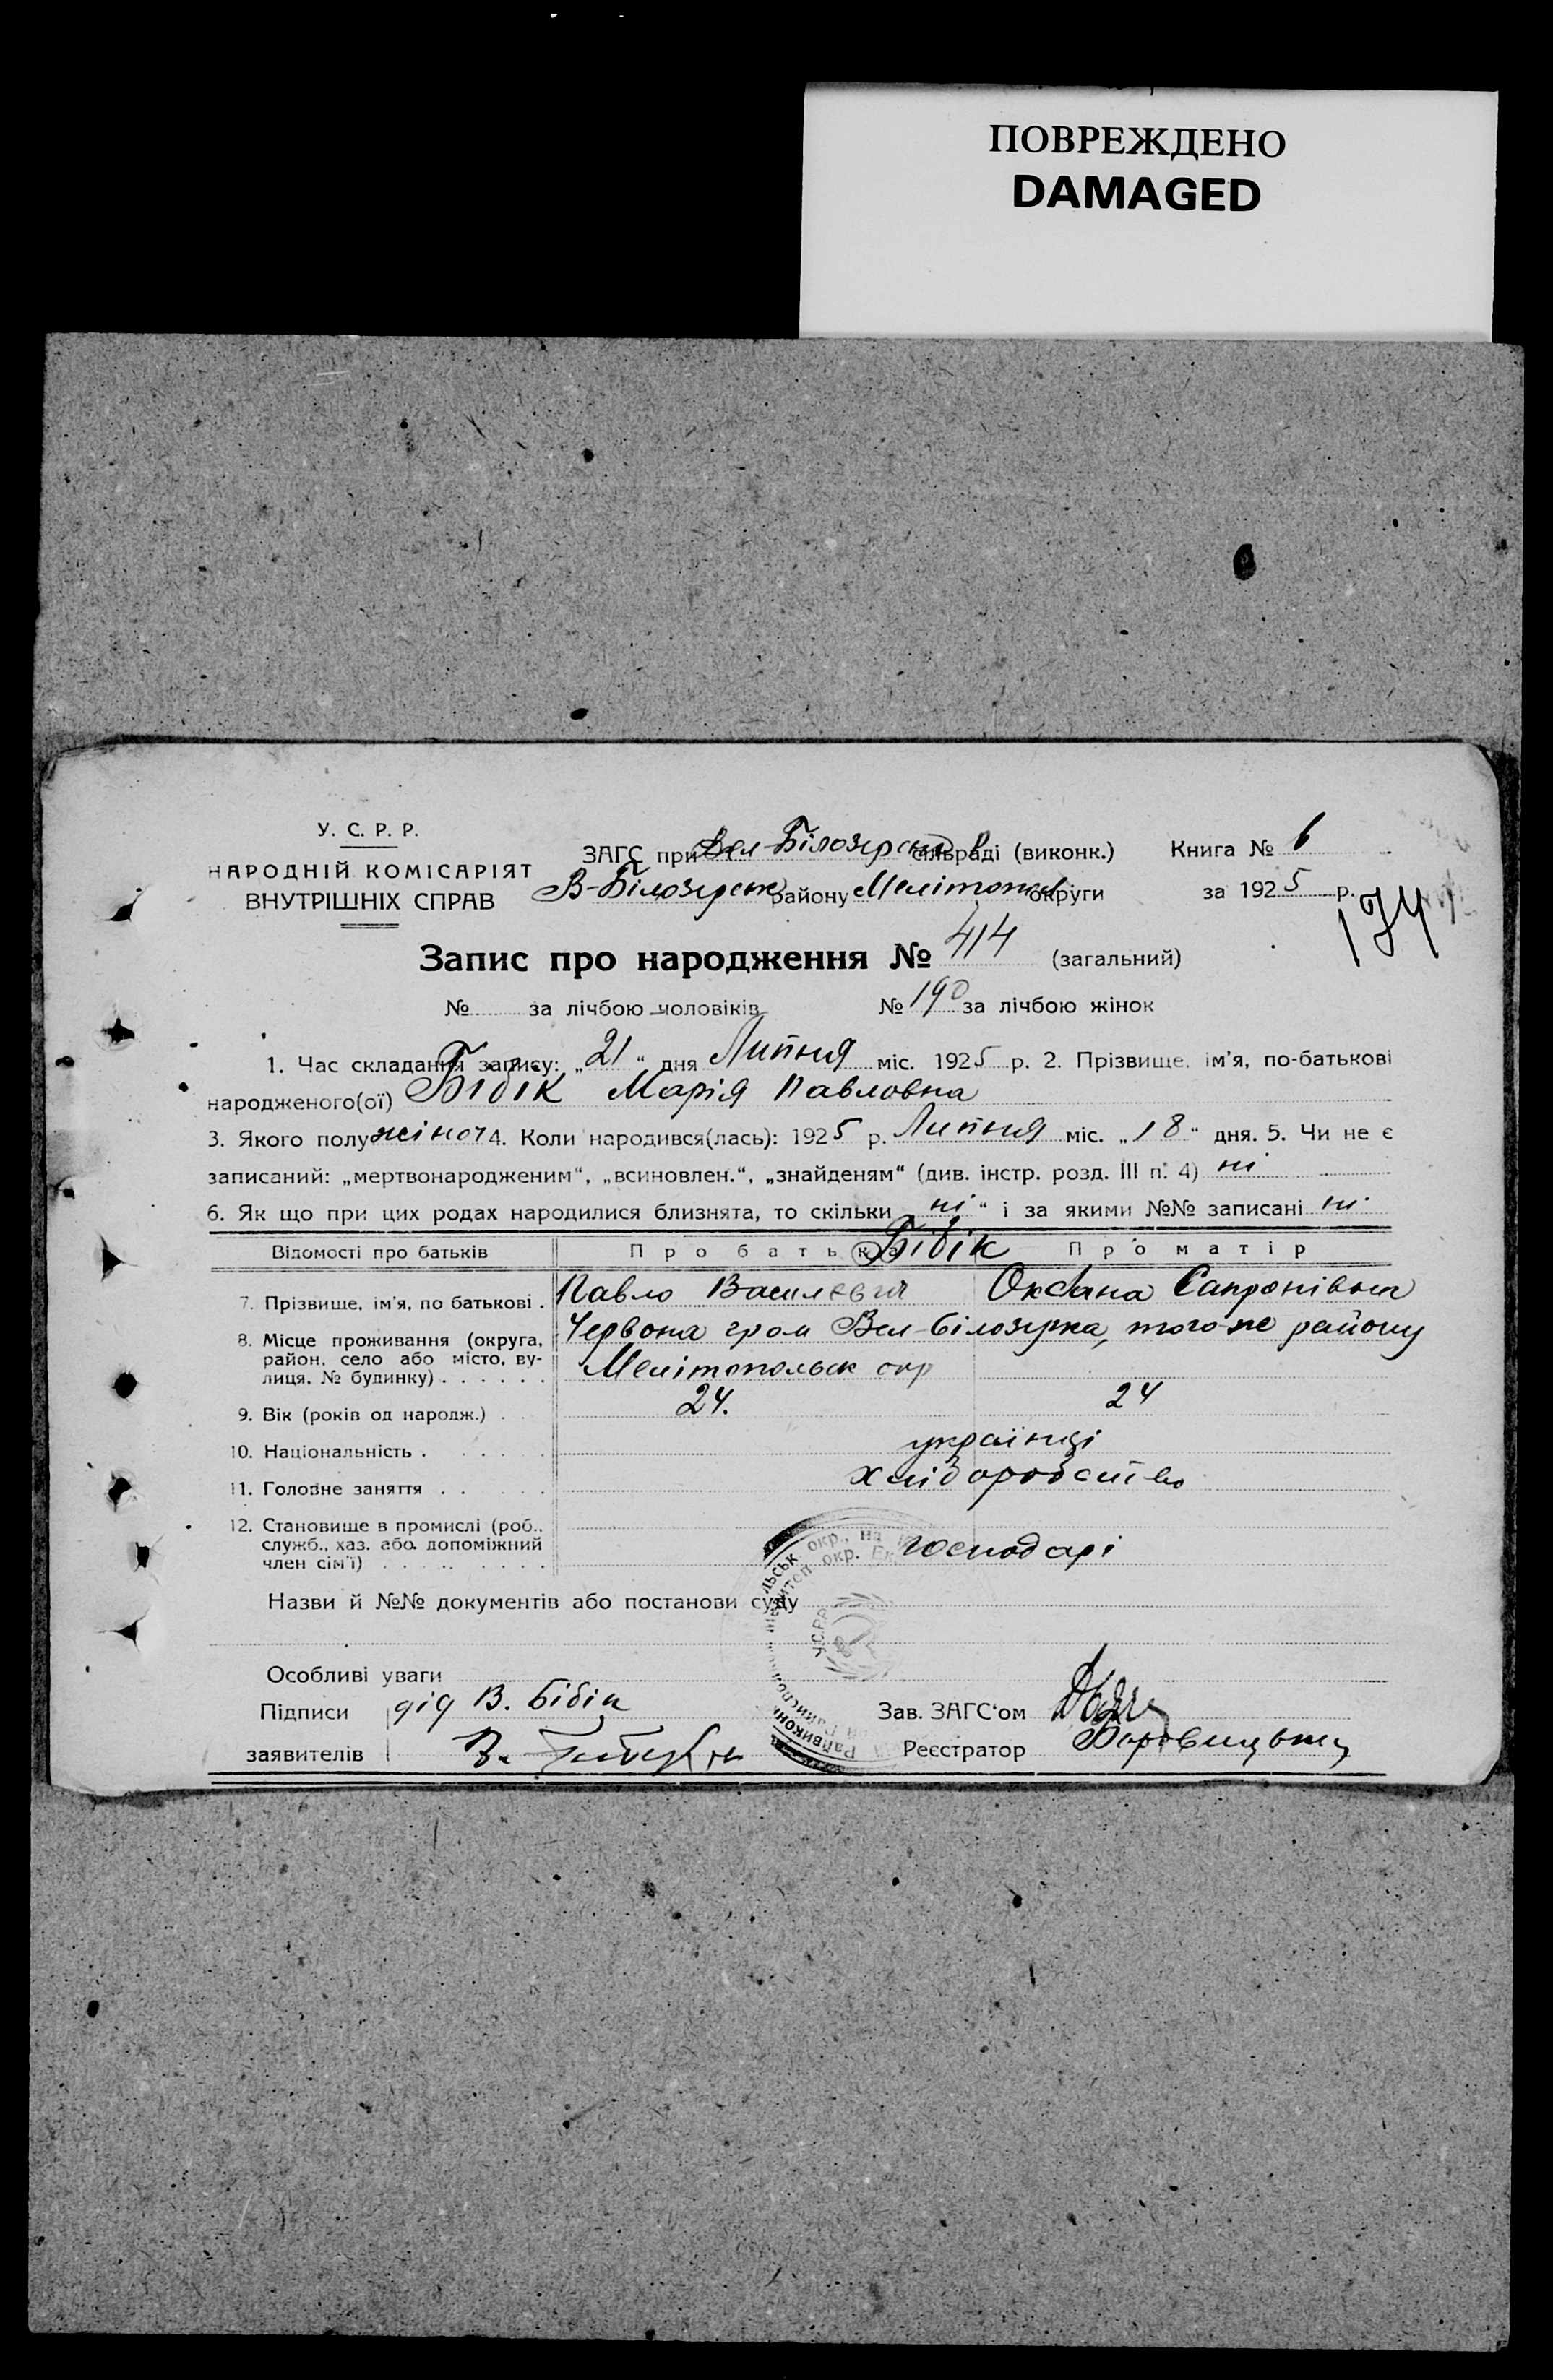 ПОВРЕЖДЕНО
DAMAGED
У. С. Р. Р.
НАРОДНІЙ КОМІСАРІЯТ
ВНУТРІШНІХ СПРАВ
ЗАГС при Вел-Білозерськ сільраді (виконк.)
В-Білозерськ району Мелітопол округи
Книга № 6
за 1925 р.
174
Запис про народження № 414 (загальний)
№ за лічбою чоловіків № 190 за лічбою жінок
1. Час складання запису: „21“ дня Липня міс. 1925 р. 2. Прізвище, ім'я, по-батькові
народженого(ої) Бібік Марія Павловна
3. Якого полу жіноч 4. Коли народився(лась): 1925 р. Липня міс. „18“ дня. 5. Чи не є
записаний: „мертвонародженим“, „всиновлен.“, „знайденям“ (див. інстр. розд. III п. 4) ні
6. Як що при цих родах народилися близнята, то скільки „ні“ і за якими №№ записані ні
Відомості про батьків Про батька Бібік Про матір
7. Прізвище, ім'я, по батькові . Павло Василевич Оксана Сапронівна
8. Місце проживання (округа, район, село або місто, вулиця, № будинку) . . . . . . Червона гром Вел-Білозерка, того-же району
Мелітопольськ окр
9. Вік (років од народж.) . 24. 24
10. Національність . українці
11. Головне заняття . . хліборобство
12. Становище в промислі (роб., служб., хаз. або допоміжний член сім'ї) господарі
Назви й №№ документів або постанови суду
Особливі уваги
Підписи дід В. Бібік
заявителів В.
Зав. ЗАГС'ом
Реєстратор
У.С.Р.Р.